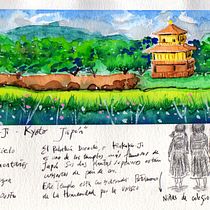 -Ji - Kyoto Japón"
El Pabellón Dorado, o Kinkaku Ji
es uno de los templos más famosos de
Japón. Sus dos plantas superiores están
de pan de oro.
Este templo está considerado Patrimonio
de la Humanidad por la UNESCO
cielo
Niñas de colegio